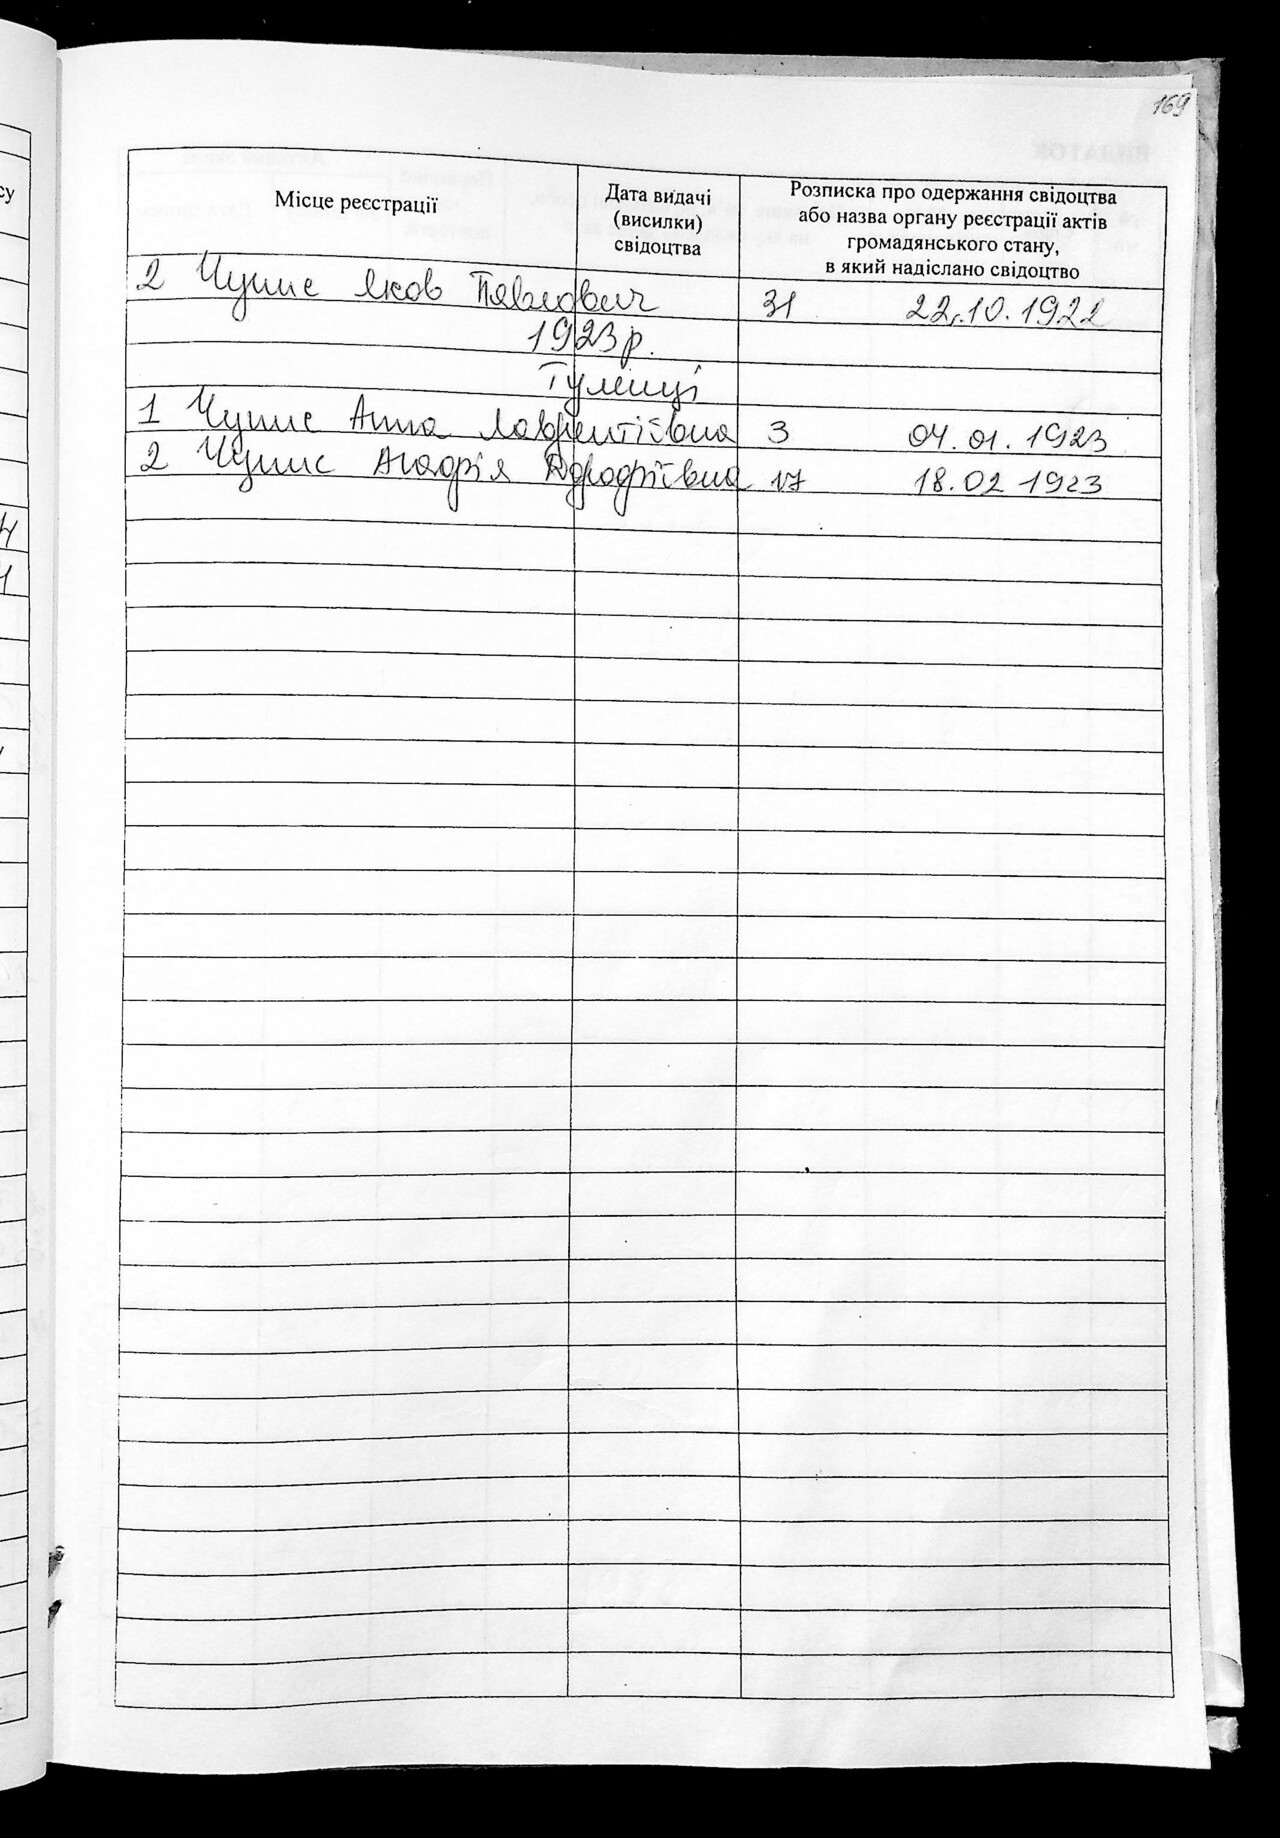 169
Місце реєстрації
Дата видачі
(висилки)
свідоцтва
Розписка про одержання свідоцтва
або назва органу реєстрації актів
громадянського стану,
в який надіслано свідоцтво
2 Чупис Яков Павлович 31 22.10.1922
1923р.
Тулинці
1 Чупис Анна Лаврентіївна 3 04.01.1923
2 Чупис Агафія 17 18.02 1923